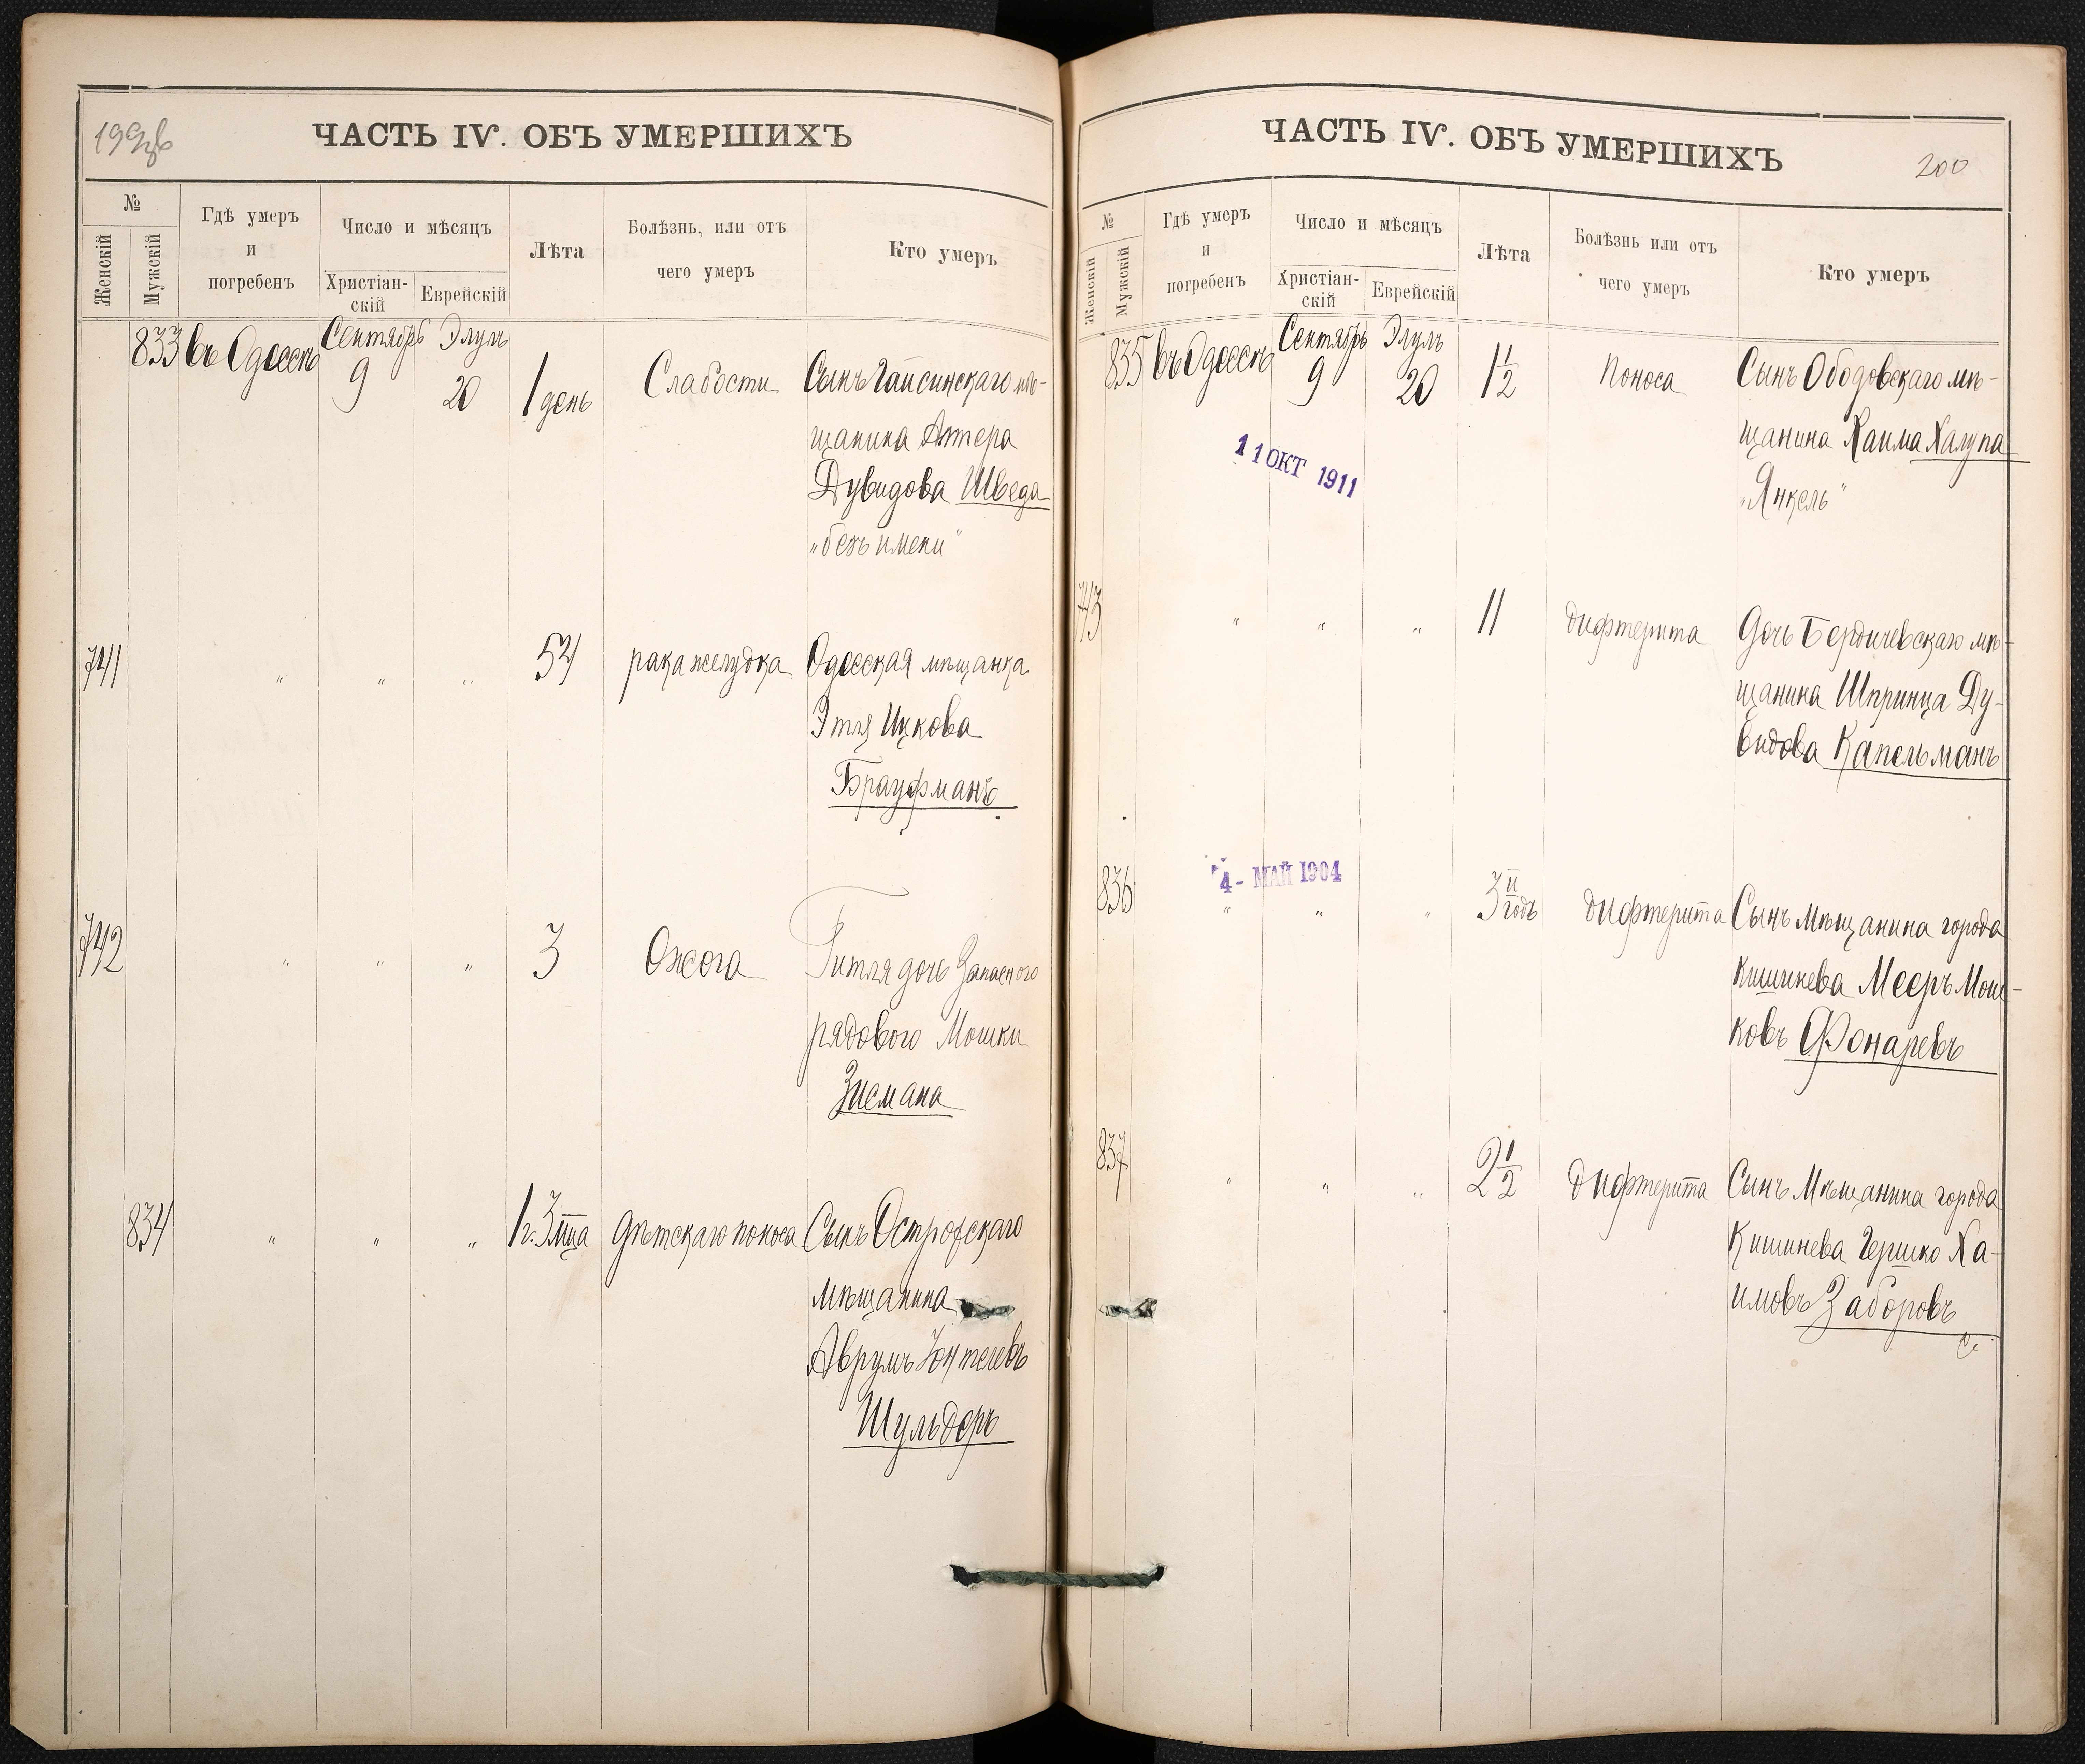 199об
ЧАСТЬ IV. ОБЪ УМЕРШИХЪ
№
Женскій
Мужскій
Гдѣ умеръ
и
погребенъ
Число и мѣсяцъ
Христіан-
скій
Еврейскій
Лѣта
Болѣзнь, или отъ
чего умеръ
Кто умеръ
833 въ Одессѣ Сентябрь 9 Элулъ 20 1 день Слабости Сынъ Гайсинскаго мѣ-
щанина Алтера
Дувидова Шведа
„безъ имени"
741 " " " 54 рака желудка Одесская мѣщанка
Этля Ицкова
Брауфманъ
742 " " " 3 Ожога Гитля дочь Запасного
рядового Мошки
Зисмана
834 " " " 1 г. 3 м-ца Дѣтскаго поноса Сынъ Острогскаго
мѣщанина
Аврумъ Юнтелевъ
Шульдеръ
ЧАСТЬ IV. ОБЪ УМЕРШИХЪ
200
№
Женскій
Мужскій
Гдѣ умеръ
и
погребенъ
Число и мѣсяцъ
Христіан-
скій
Еврейскій
Лѣта
Болѣзнь или отъ
чего умеръ
Кто умеръ
835 въ Одессѣ Сентябрь 9 Элулъ 20 1½ Поноса Сынъ Ободовскаго мѣ-
щанина Хаима Халупа
„Янкель"
11 ОКТ 1911
743 " " " 11 дифтерита Дочь Бердичевскаго мѣ-
щанина Шпринца Ду-
видова Капельманъ
4 - МАЙ 1904
836 " " " 3 й годъ дифтерита Сынъ мѣщанина города
Кишинева Мееръ Мош-
ковъ Фонаревъ
837 " " " 2½ дифтерита Сынъ Мѣщанина города
Кишинева Гершко Ха-
имовъ Заборовъ